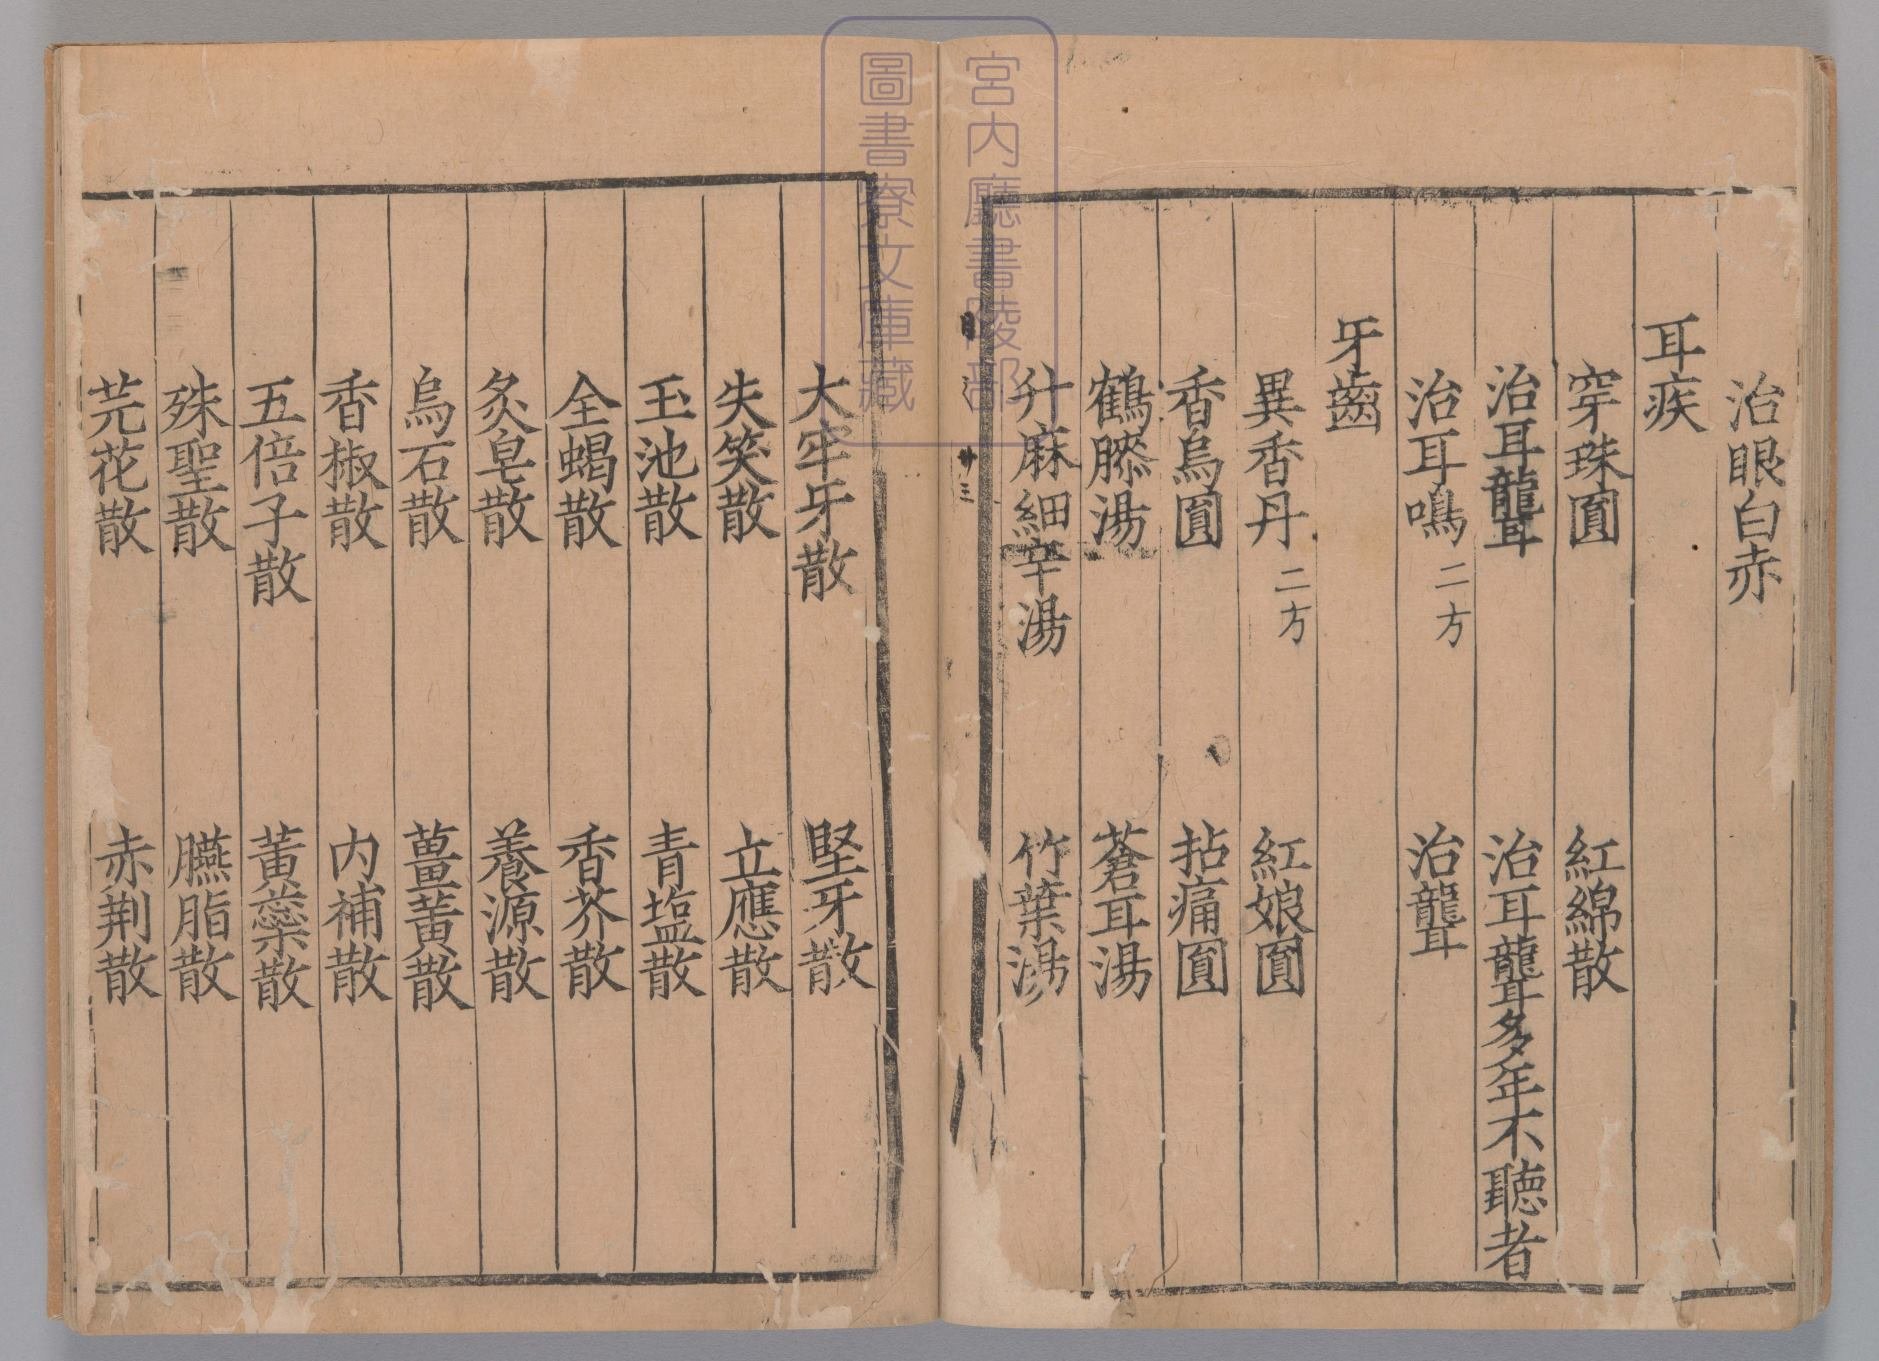 治眼白赤
耳疾
穿珠圎 紅綿散
治耳聾 治耳聾多年不聽者
治耳鳴二方 治聾
牙齒
異香丹二方 紅娘圎
香烏圎 拈痛圎
鶴膝湯 蒼耳湯
升麻細辛湯 竹葉湯
目 廿三
大牢牙散 堅牙散
失笑散 立應散
玉池散 青塩散
全蝎散 香芥散
炙皂散 養源散
烏石散 薑黃散
香椒散 内補散
五倍子散 黃蘂散
殊聖散 臙脂散
芫花散 赤荆散
宮内廳書陵部
圖書寮文庫藏